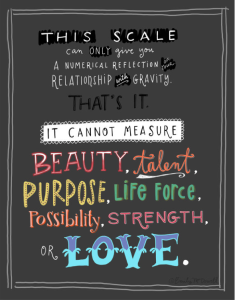 THIS SCALE
can ONLY give you
A NUMERICAL REFLECTION of your
RELATIONSHIP with GRAVITY.
THAT'S IT.
IT CANNOT MEASURE
BEAUTY, talent,
PURPOSE, LIFE FORCE,
POSSIBILITY, STRENGTH,
OR LOVE.